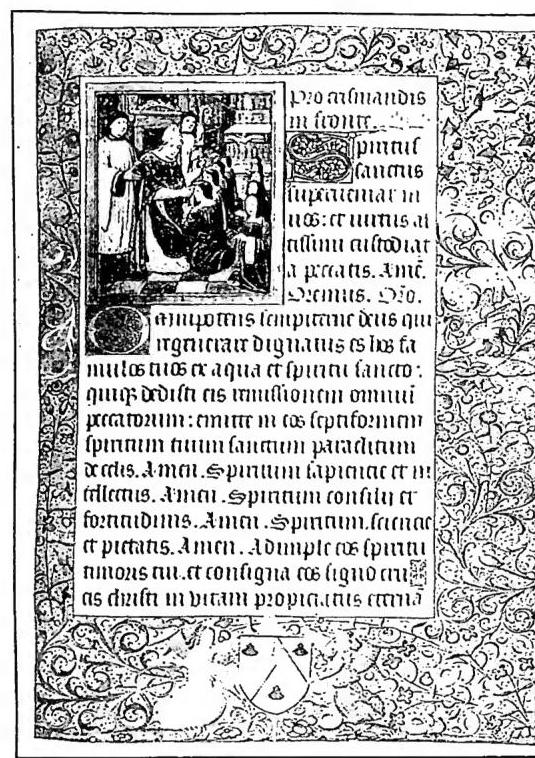 Pro crismandis
in fronte.
Spiritus
sanctus
superveniat in
vos: et virtus al
tissimi custodiat
a peccatis. Amē.
Oremus. Oro.
Omnipotens sempiterne deus qui
regenerare dignatus es hos fa
mulos tuos ex aqua et spiritu sancto:
quiq; dedisti eis remissionem omniū
peccatorum: emitte in eos septiformem
spiritum tuum sanctum paraclitum
de celis. Amen. Spiritum sapiencie et in
tellectus. Amen. Spiritum consilij et
fortitudinis. Amen. Spiritum sciencie
et pietatis. Amen. Adimple eos spiritu
timoris tui. et consigna eos signo cru
cis christi in vitam propiciatus eternā